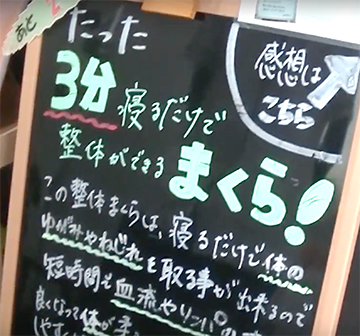 あと
たった
感想は
こちら
3分寝るだけで
整体ができるまくら!
この整体まくらは、寝るだけで体の
ゆがみやねじれを取る事が出来るので
短時間で血流やリンパの
良くなって体が